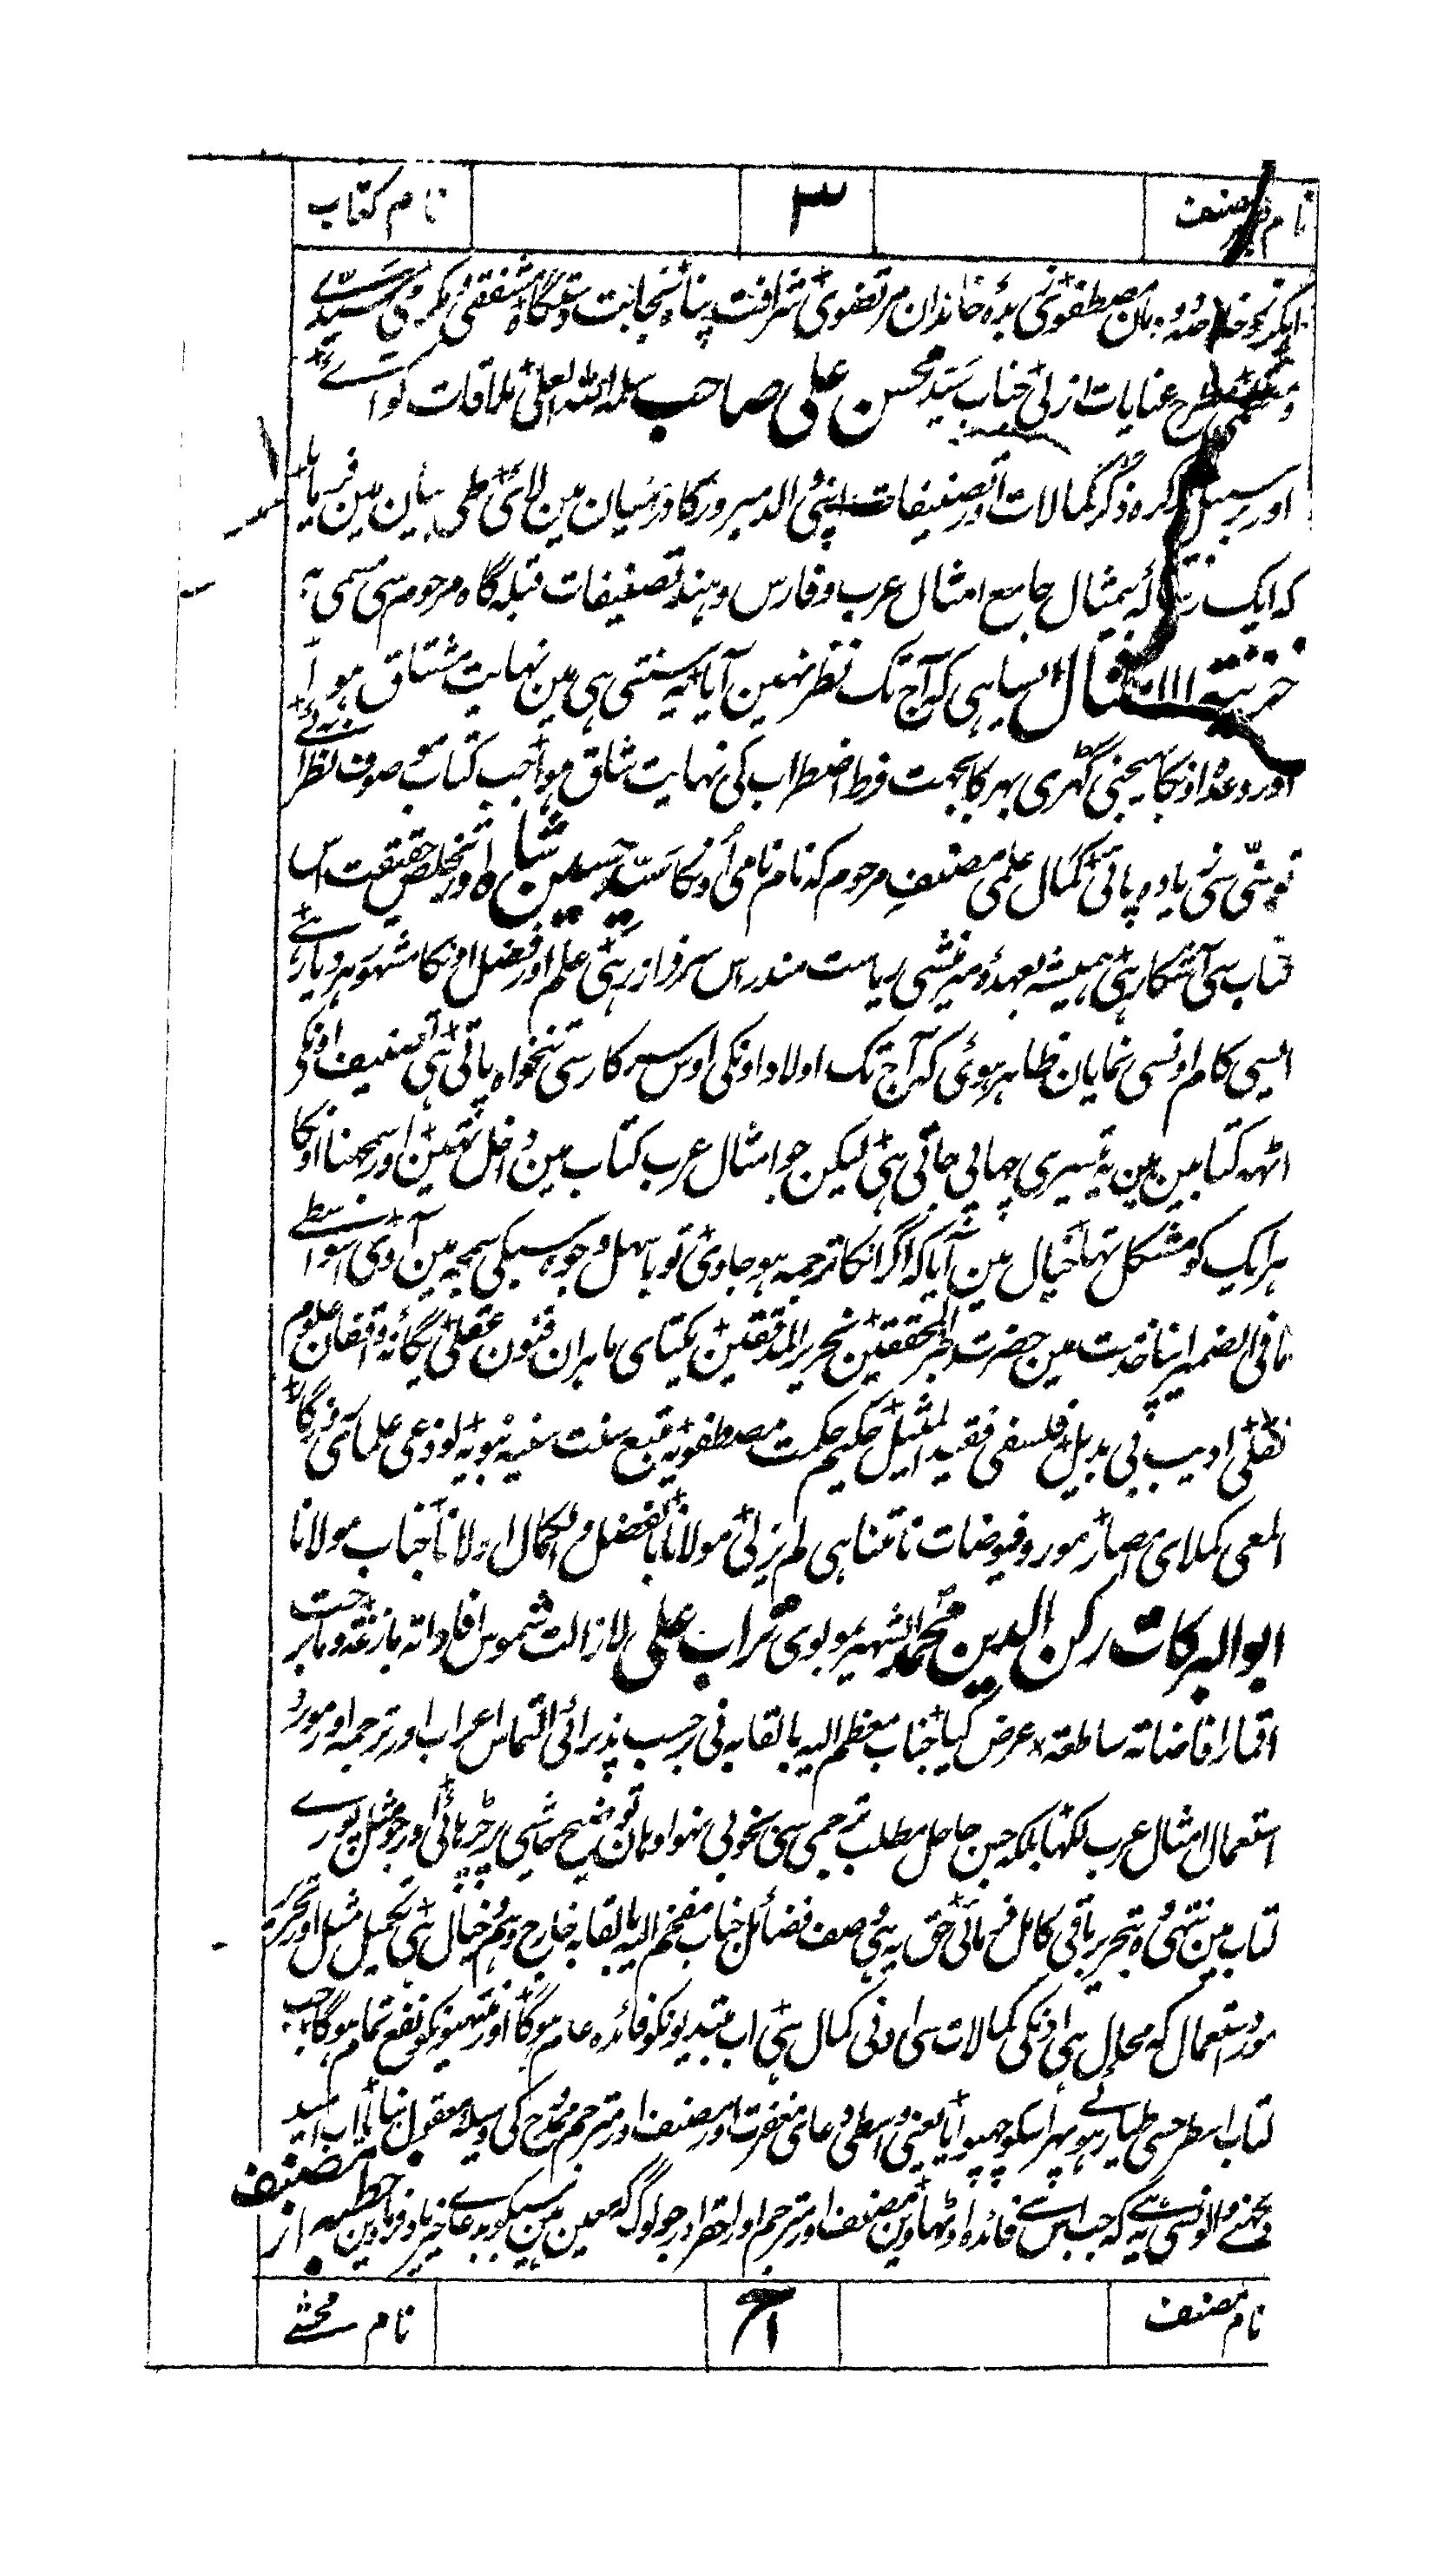 نام مصنف ۳ نام کتاب
ایکروز خلاصہ دودمان مصطفوی زبدہ خاندان مرتضوی شرافت پناہ نجابت دستگاہ مشفقی مکرمی سیدی
مطرح عنایات ازلی جناب سید محسن علی صاحب سلمہ اللہ العلی ملاقات کو آئے
اور بر سبیل تذکرہ ذکر کمالات اور تصنیفات اپنی والد مبرور کا درمیان مین لائی طی بیان مین فرمایا
کہ ایک رسالہ بیمثال جامع امثال عرب و فارس و ہند تصنیفات قبلہ گاہ مرحوم سی مسمی بہ
خزینۃ الامثال ایسا ہی کہ آج تک نظر نہین آیا یہ سنتی ہی مین نہایت مشتاق ہوا
اور وعدہ اونکا بھیجنی گھڑی بھر کا بجہت فرط اضطراب کی نہایت شاق ہوا جب کتاب موصوف نظر آئی
تو سنی سی زیادہ پائی کمال علمی مصنف مرحوم کہ نام نامی اونکا سید حسین شاہ اور تخلص حقیقت اس
کتاب سی آشکار ہی ہمیشہ بعہدہ میر منشی ریاست مندراس سرفراز رہی علم اور فضل اونکا مشہور ہر دیار ہے
ایسی کام اونسی نمایان ظاہر ہوئی کہ آج تک اولاد اونکی اوس سرکار سی تنخواہ پاتی ہی تصنیف اونکی
اٹھہ کتابین ہین یہ تیسری چھاپی جاتی ہی لیکن جو امثال عرب کتاب مین داخل تھین اور سمجھنا اونکا
ہر ایک کو مشکل تھا خیال مین آیا کہ اگر انکا ترجمہ ہو جاوی تو باسہل وجوہ سبکی سمجھ مین آوی اسواسطے
مافی الضمیر اپنا خدمت مین حضرت حبر المحققین نحریر المدققین یکتای ماہران فنون عقلی یگانہ واقفان علوم
نقلی ادیب بی بدیل فلسفی فقید المثیل حکیم حکمت مصطفویہ متبع سنت سنیہ نبویہ لوذعی علمای روزگار
المعی کملای امصار مورد فیوضات نامتناہی لم یزلی مولانا بالفضل و الکمال اولانا جناب مولانا
ابو البرکات رکن الدین محمد الشہیر بمولوی تراب علی لا زالت شموس افاداتہ بازغۃ و ما برحت
اقمار افاضاتہ ساطعۃ عرض کیا جناب معظم الیہ بالقابہ نی حسب پذیرائی التماس اعراب اور ترجمہ اور مورد
استعمال امثال عرب لکھا بلکہ جن جا حل مطلب ترجمی سی بخوبی نہوا وہان توضیح حاشی پر چڑہائی اور جو مثل پورے
کتاب مین نتھی وہ بتحریر باقی کامل فرمائی حق یہ ہی وصف فضائل جناب مفخم الیہ بالقابہ خارج وہم و خیال ہی تکمیل مثل اور تحریر
مورد استعمال کہ محال ہی اونکی کمالات سی ادنی کمال ہی اب مبتدیونکو فائدہ عام ہوگا اور منتہیونکو نفع تمام ہوگا جب
کتاب اسطرحسی طیار ہوئے پھر اسکو چھپوایا یعنی واسطی دعای مغفرت اور مصنف اور مترجم ممدوح کی وسیلہ معقول بنایا اب امید
دیکھنے والونسی یہ ہے کہ جب اس سے فائدہ اوٹھاوین مصنف اور مترجم اور احقر اور جو لوگ کہ معین ہین سبکو بدعای خیر یاد فرماوین خطبہ از مصنف
نام مصنف اح نام محشے